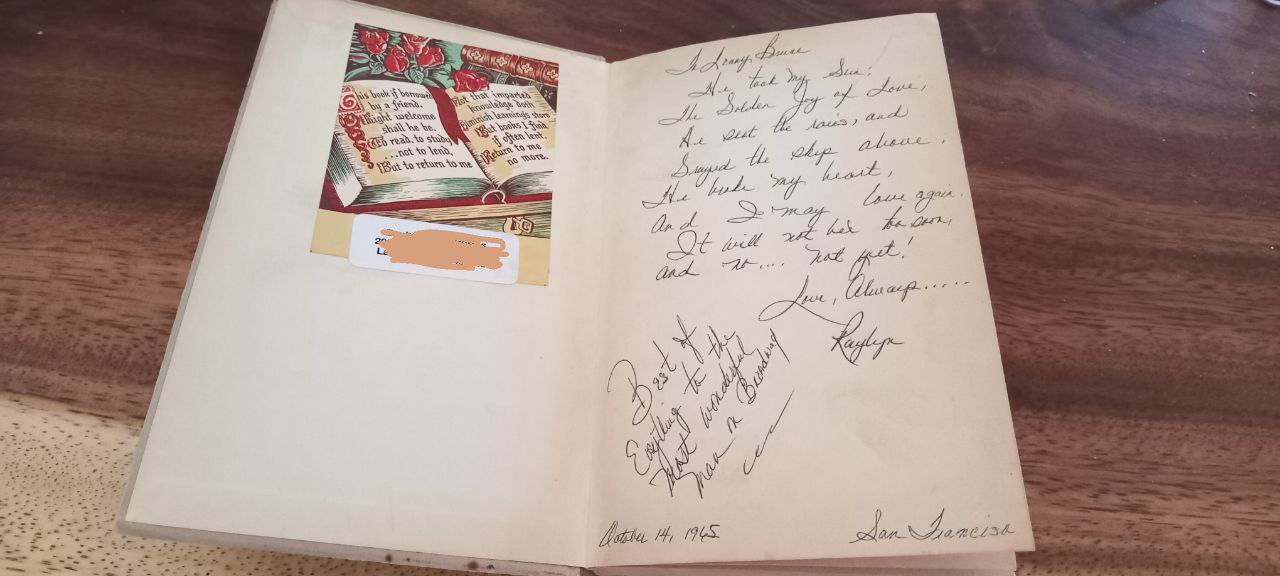 This book if borrowed
by a friend,
Right welcome
shall he be,
To read, to study
...not to lend,
But to return to me
Not that imparted
knowledge doth
Diminish learnings store
But books I find
if often lent,
Return to me
no more.
To Lenny Bruce
He took my Sun;
The Golden Joy of Love,
He sent the rains, and
Grayed the skys above.
He broke my heart,
And I may love again.
It will not be too soon,
and no.... not yet!
Love, Always.....
Raylyn
Best of
Everything to the
Most wonderful
man on Broadway
October 14, 1965
San Francisco